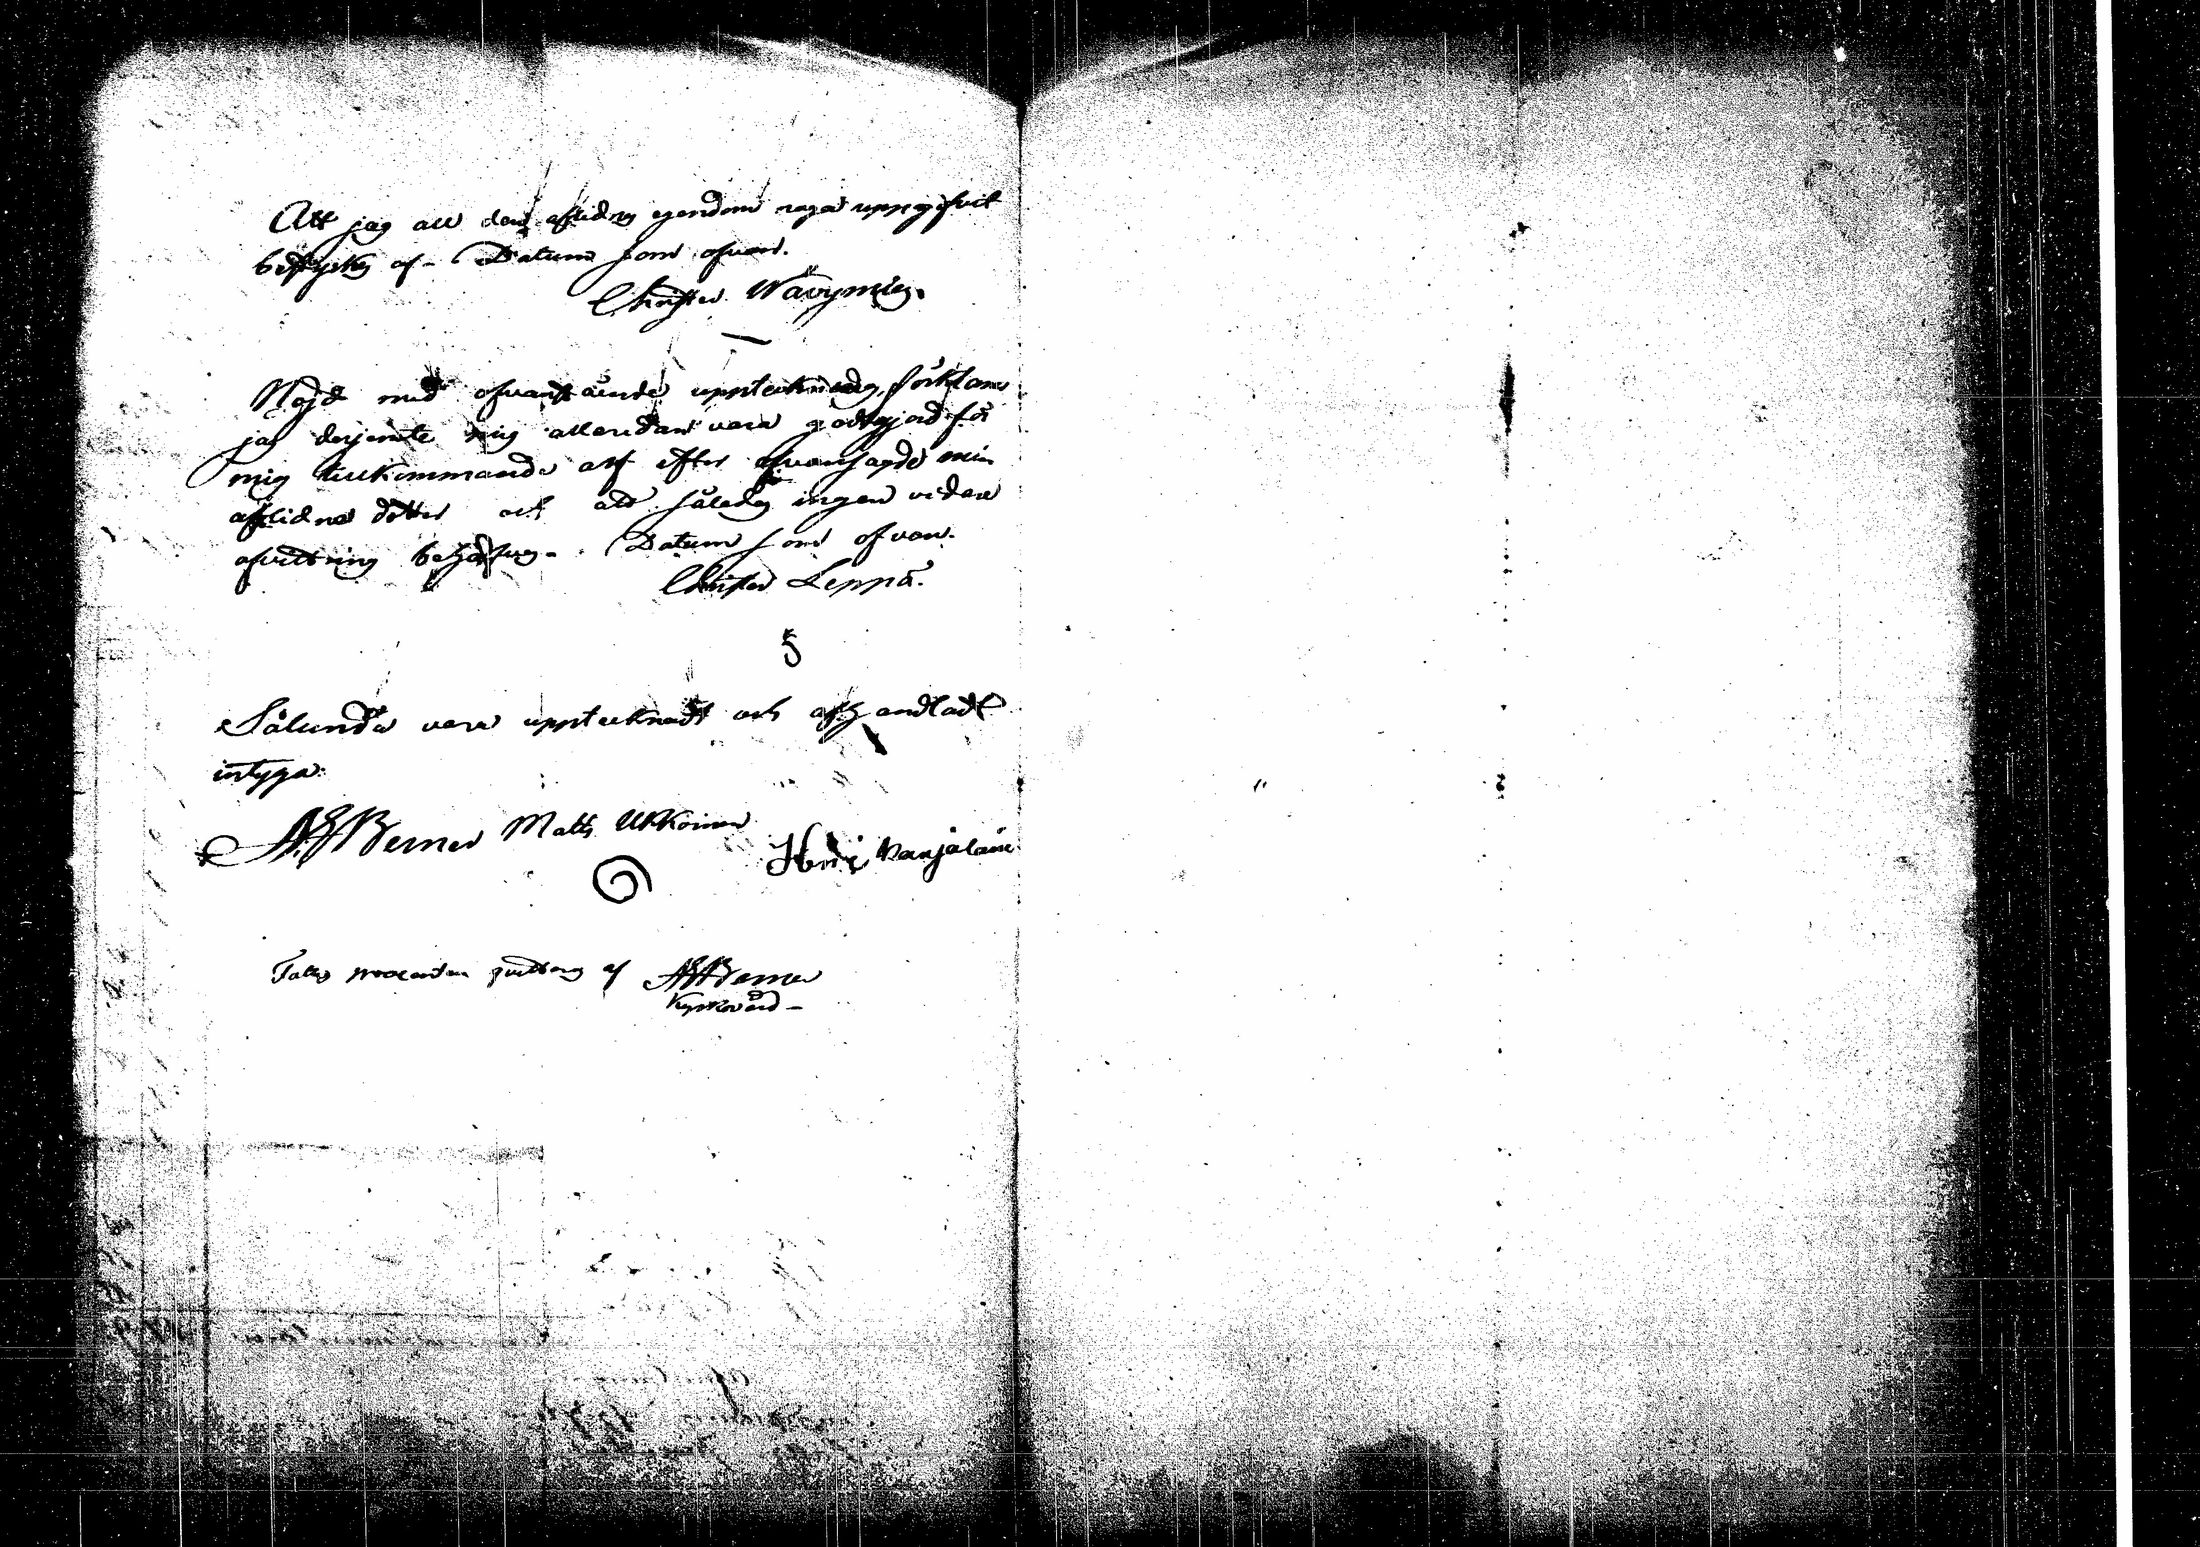 Att jag all den aflidnes egendom noga uppgifvit
betygas af - Datum som ofvan.
Christer Wäyrynien.
Nöjd med ofvanstående uppteckning, förklarar
jag derjemte mig allaredan vara godtgjord för
mig tillkommande arf efter ofvansagde min
aflidne dotter och att således ingen vidare
afvittring behöfves - Datum som ofvan.
Christer Leppä.
§
Sålunda vara upptecknadt och afhandladt
intyga:
Berner Matts Ukkoinen
Henr: Karjalain
Fattig procenten qvitteras af Berner
Kyrkovärd -